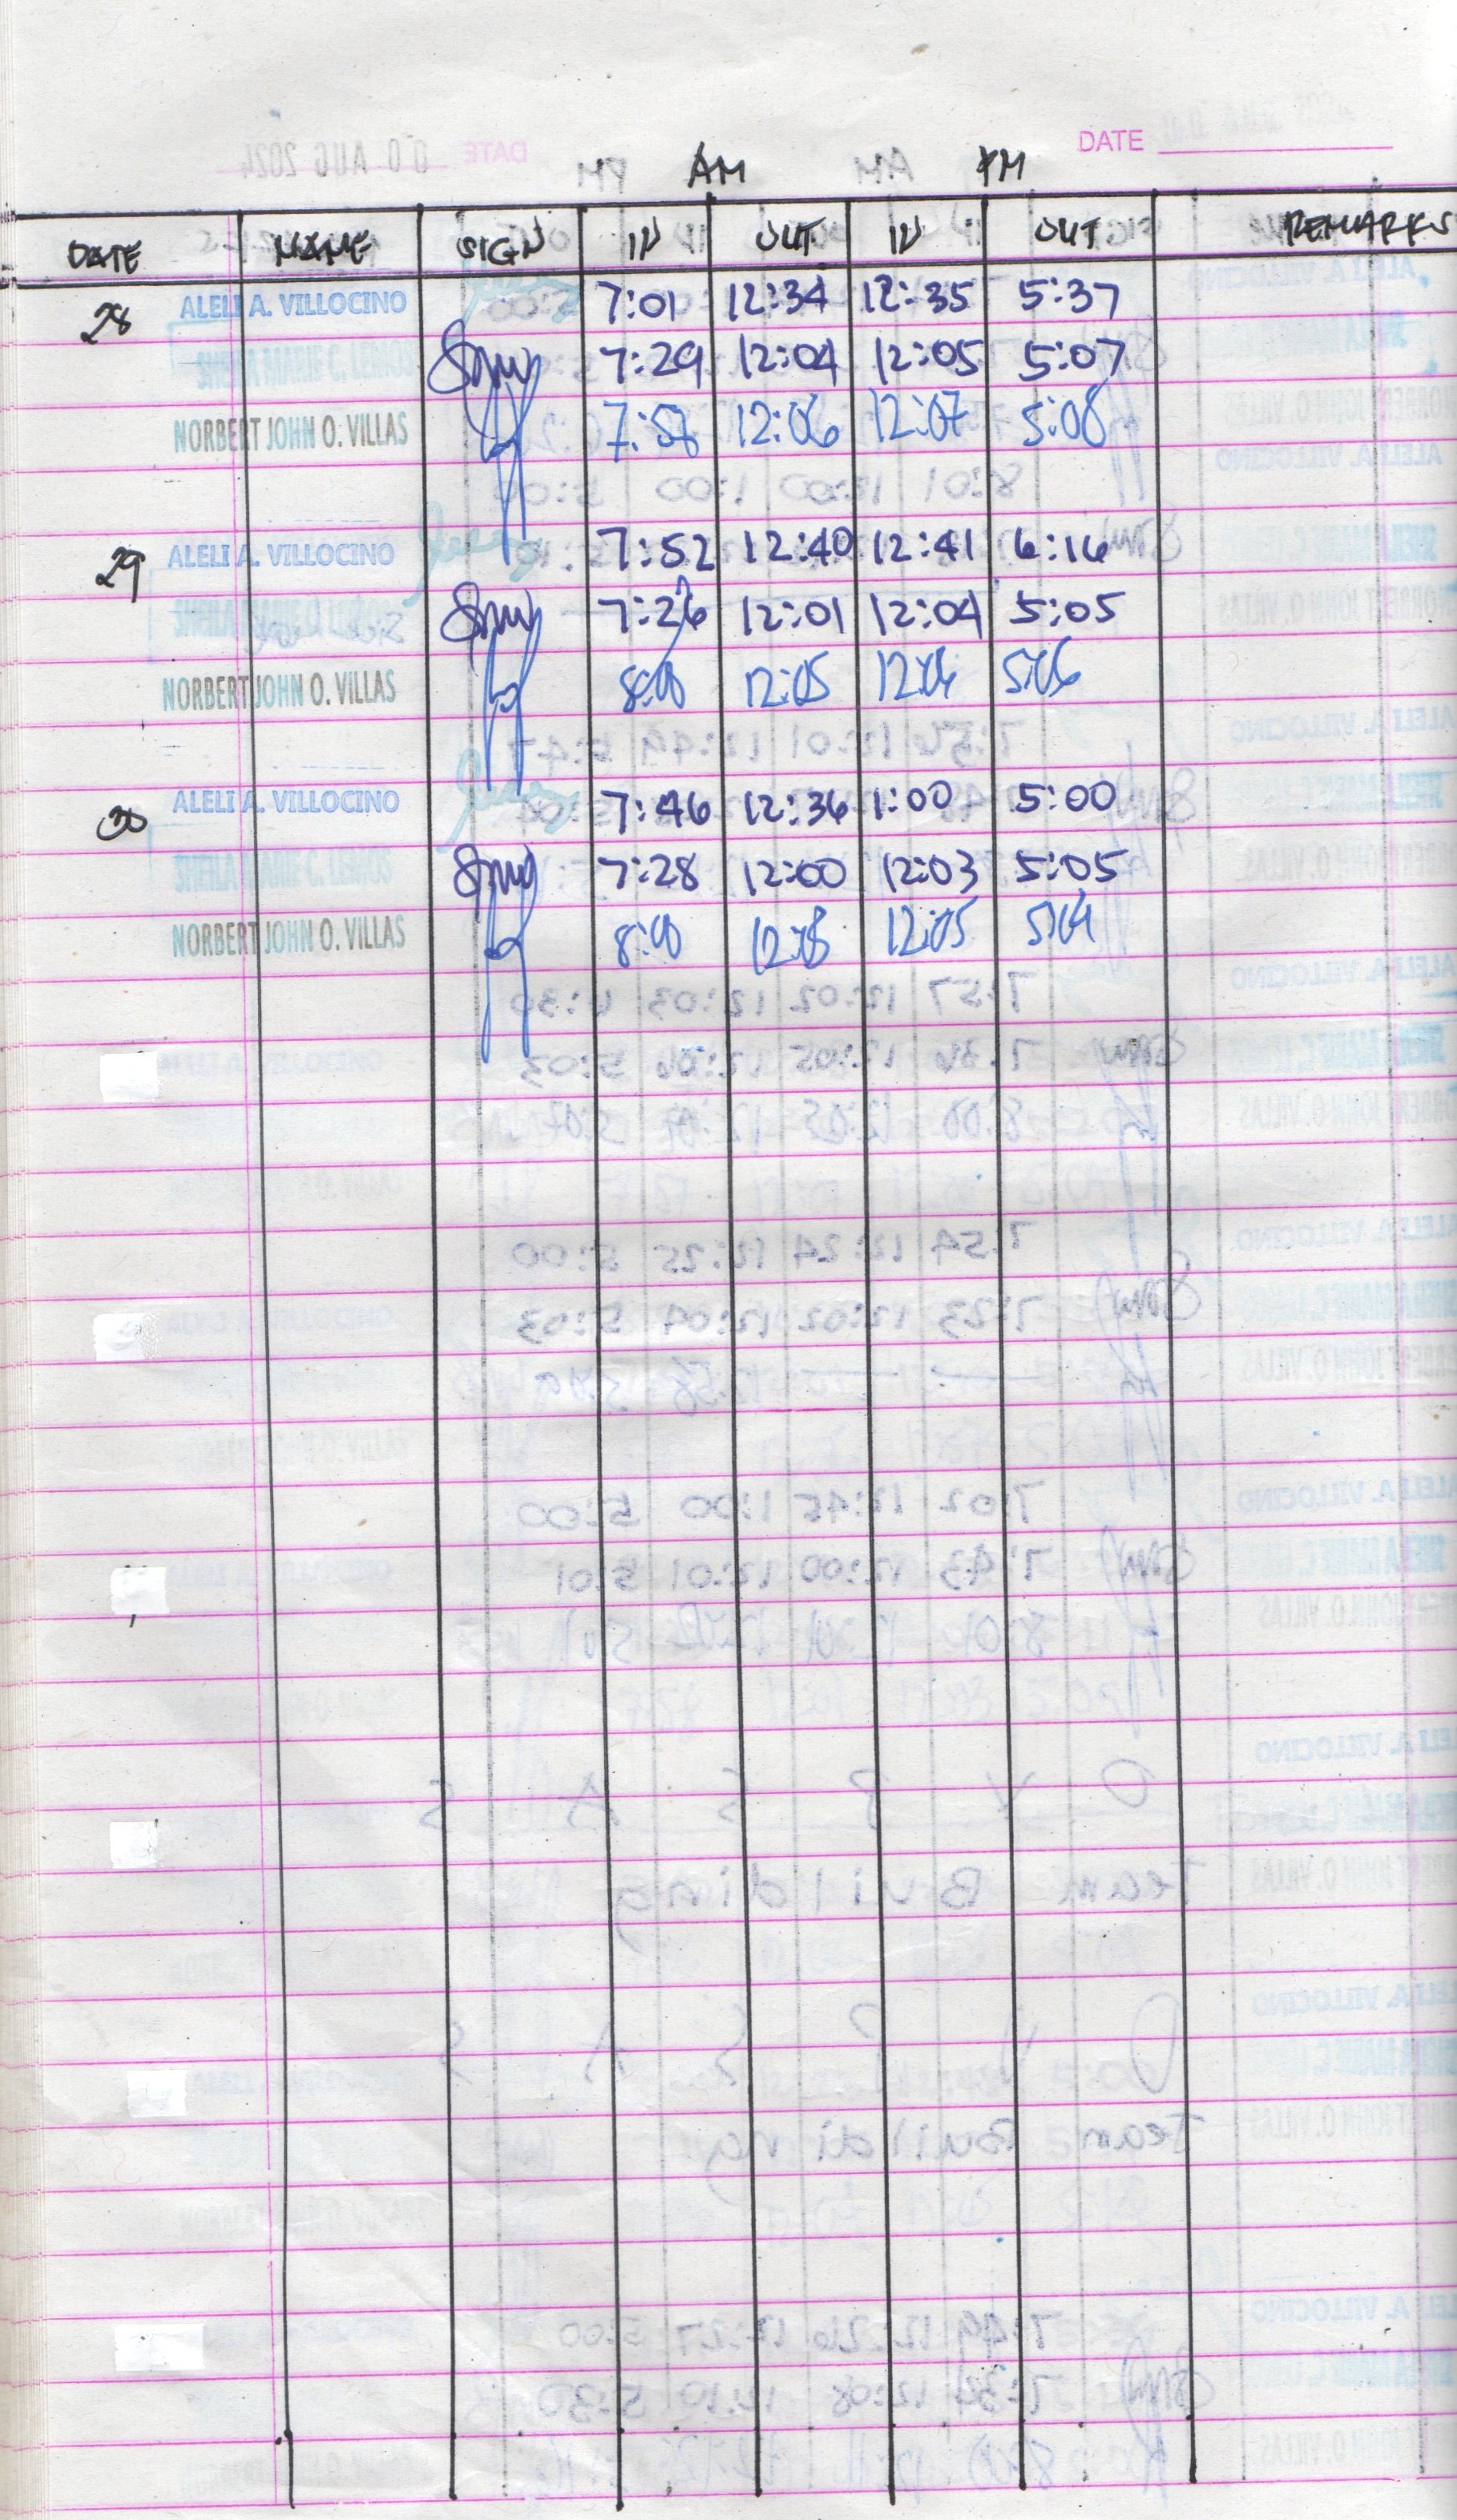 DATE
AM PM
DATE NAME SIGN IN OUT IN OUT REMARKS
28 ALELI A. VILLOCINO 7:01 12:34 12:35 5:37
SHEILA MARIE C. LEMOS 7:29 12:04 12:05 5:07
NORBERT JOHN O. VILLAS 7:58 12:06 12:07 5:08
29 ALELI A. VILLOCINO 7:52 12:40 12:41 6:16
SHEILA MARIE C. LEMOS 7:26 12:01 12:04 5:05
NORBERT JOHN O. VILLAS 8:00 12:05 12:06 5:06
30 ALELI A. VILLOCINO 7:46 12:36 1:00 5:00
SHEILA MARIE C. LEMOS 7:28 12:00 12:03 5:05
NORBERT JOHN O. VILLAS 8:00 12:05